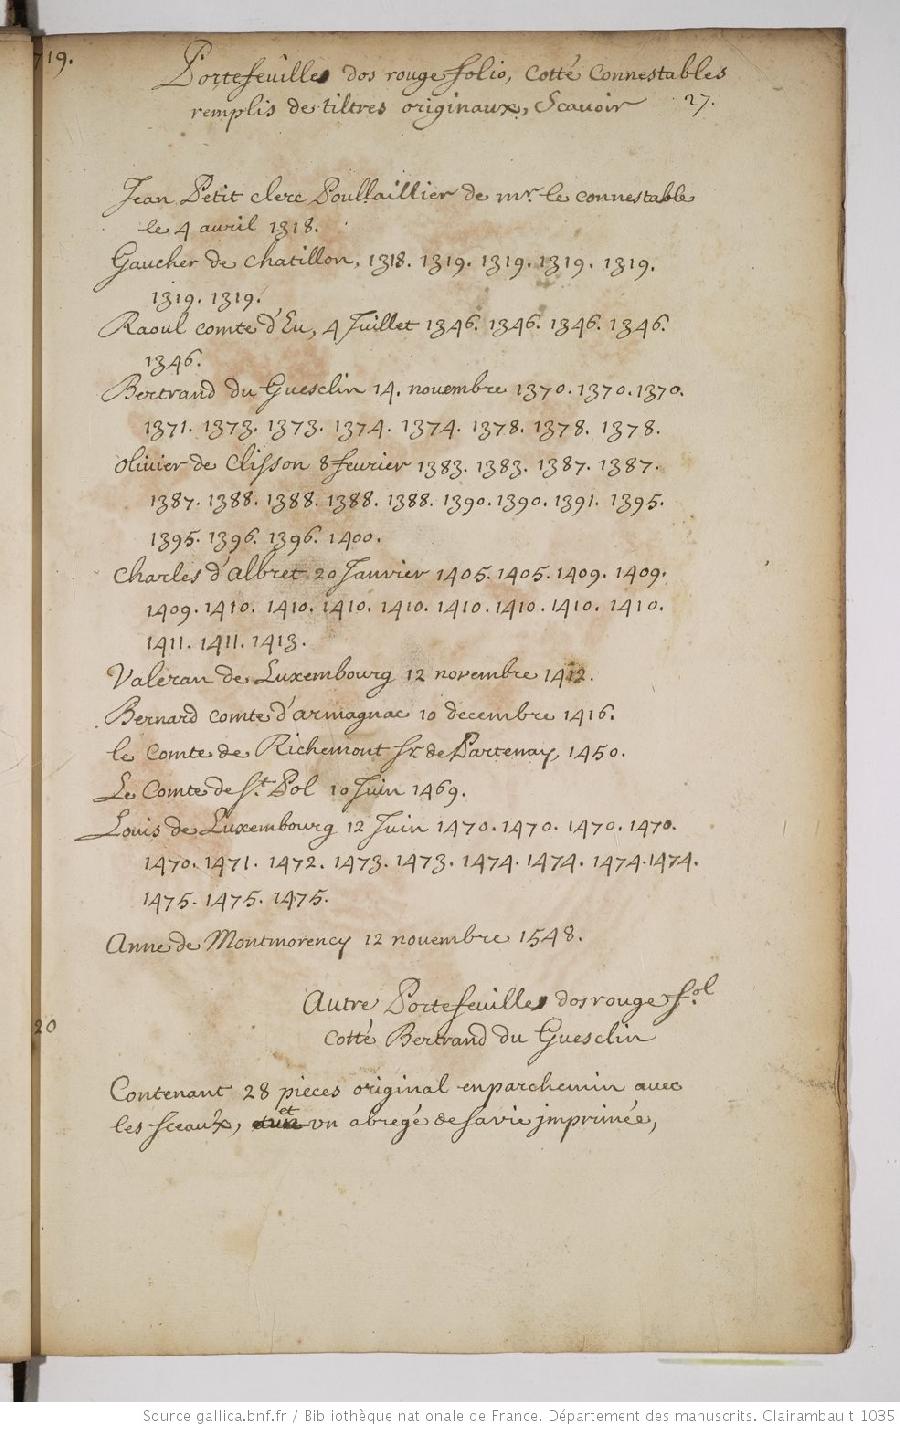 719.
Portefeuille dos rouge folio, cotté connestables
remplis de tiltres originaux, Scavoir 27.
Jean Petit clerc Poullaillier de mr. le connestable
le 4 avril 1318.
Gaucher de chatillon, 1318. 1319. 1319. 1319. 1319.
1319. 1319.
Raoul comte d'Eu, 4 Juillet 1346. 1346. 1346. 1346.
1346.
Bertrand du Guesclin 14. novembre 1370. 1370. 1370.
1371. 1373. 1373. 1374. 1374. 1378. 1378. 1378.
olivier de Clisson 8 fevrier 1383. 1383. 1387. 1387.
1387. 1388. 1388. 1388. 1388. 1390. 1390. 1391. 1395.
1395. 1396. 1396. 1400.
Charles d'albret 20 Janvier 1405. 1405. 1409. 1409.
1409. 1410. 1410. 1410. 1410. 1410. 1410. 1410. 1410.
1411. 1411. 1413.
Valeran de Luxembourg 12 novembre 1412.
Bernard comte d'armagnac 10 decembre 1416.
le comte de Richemont sr. de Partenay, 1450.
Le Comte de St. Pol 10 Juin 1469.
Louis de Luxembourg 12 Juin 1470. 1470. 1470. 1470.
1470. 1471. 1472. 1473. 1473. 1474. 1474. 1474. 1474.
1475. 1475. 1475.
Anne de Montmorency 12 novembre 1548.
Autre Portefeuille dos rouge fol.
20
cotté Bertrand du Guesclin
Contenant 28 pieces original en parchemin avec
les sceaux, et un abregé de sa vie imprimée,
Source gallica.bnf.fr / Bibliothèque nationale de France. Département des manuscrits. Clairambault 1035